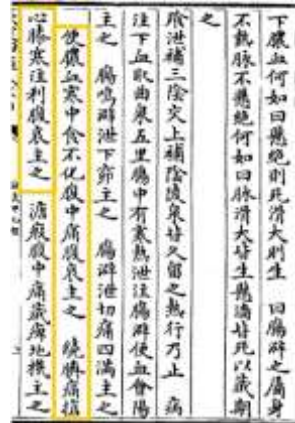 下膿血何如曰懸絕則死滑大則生　曰腸澼之屬身
不熱脉不懸絕何如曰脉滑大皆生懸濇皆死以藏期
之
飧泄補三陰交上補陰陵泉皆久留之熱行乃止　病
注下血取曲泉五里腸中有寒熱泄注腸澼便血會陽
主之　腸鳴澼泄下窌主之　腸澼泄切痛四滿主之
便膿血寒中食不化腹中痛腹哀主之　繞臍痛搶
心膝寒注利腹哀主之　溏瘕腹中痛藏痺地機主之